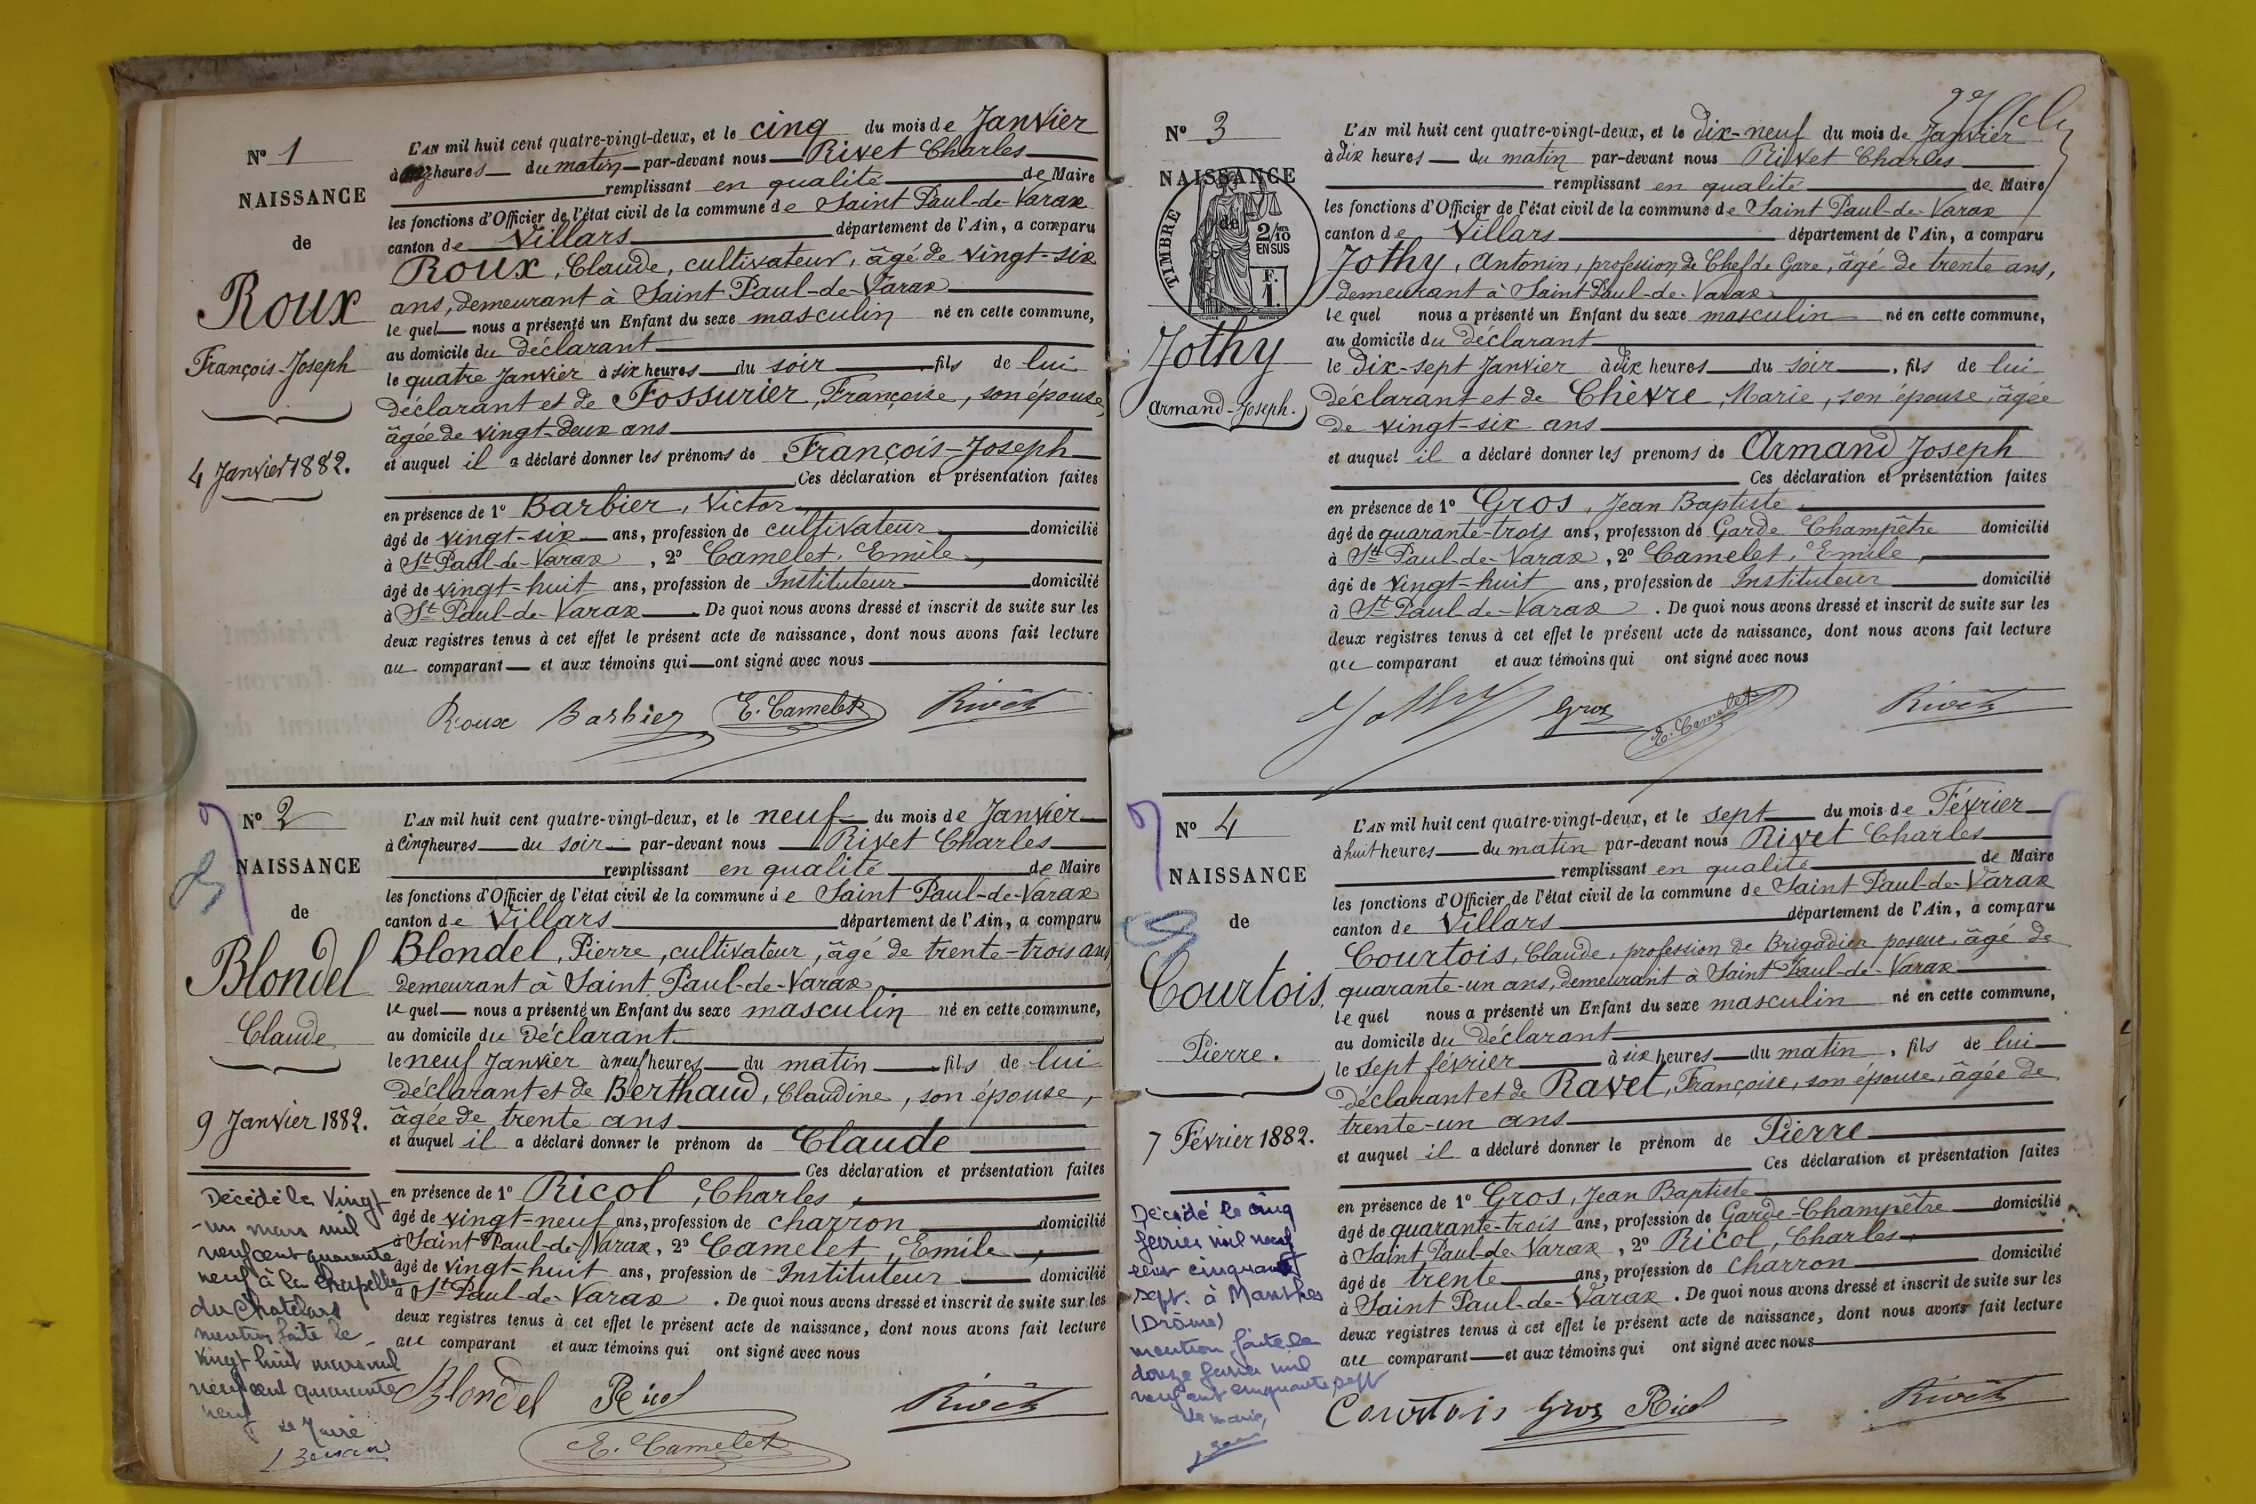 N° 1
NAISSANCE
de
Roux
François-Joseph
4 Janvier 1882.
L'AN mil huit cent quatre-vingt-deux, et le cinq du mois de Janvier
à heures du matin par-devant nous Rivet Charles
remplissant en qualité de Maire
les fonctions d'Officier de l'état civil de la commune de Saint Paul-de-Varax
canton de Villars département de l'Ain, a comparu
Roux, Claude, cultivateur, âgé de vingt-six
ans, demeurant à Saint Paul-de-Varax
lequel nous a présenté un Enfant du sexe masculin né en cette commune,
au domicile du déclarant
le quatre Janvier à six heures du soir fils de lui
déclarant et de Fossurier, Françoise, son épouse,
âgée de vingt-deux ans
et auquel il a déclaré donner les prénoms de François-Joseph
Ces déclaration et présentation faites
en présence de 1° Barbier, Victor,
âgé de vingt-six ans, profession de cultivateur domicilié
à St Paul-de-Varax, 2° Camelet, Emile,
âgé de vingt-huit ans, profession de Instituteur domicilié
à St Paul-de-Varax. De quoi nous avons dressé et inscrit de suite sur les
deux registres tenus à cet effet le présent acte de naissance, dont nous avons fait lecture
au comparant et aux témoins qui ont signé avec nous
Roux Barbier E. Camelet Rivet
N° 2
NAISSANCE
de
Blondel
Claude
9 Janvier 1882.
Décédé le vingt
-un mars mil
neuf cent quarante
neuf à la Chapelle
du Chatelard
mention faite le
vingt huit mars mil
neuf cent quarante
neuf
Le Maire
L'AN mil huit cent quatre-vingt-deux, et le neuf du mois de Janvier
à cinq heures du soir par-devant nous Rivet Charles
remplissant en qualité de Maire
les fonctions d'Officier de l'état civil de la commune de Saint Paul-de-Varax
canton de Villars département de l'Ain, a comparu
Blondel, Pierre, cultivateur, âgé de trente-trois ans,
demeurant à Saint Paul-de-Varax,
lequel nous a présenté un Enfant du sexe masculin né en cette commune,
au domicile du déclarant
le neuf Janvier à neuf heures du matin fils de lui
déclarant et de Berthaud, Claudine, son épouse,
âgée de trente ans
et auquel il a déclaré donner le prénom de Claude
Ces déclaration et présentation faites
en présence de 1° Ricol, Charles,
âgé de vingt-neuf ans, profession de charron domicilié
à Saint Paul-de-Varax, 2° Camelet, Emile,
âgé de vingt-huit ans, profession de Instituteur domicilié
à St Paul-de-Varax. De quoi nous avons dressé et inscrit de suite sur les
deux registres tenus à cet effet le présent acte de naissance, dont nous avons fait lecture
au comparant et aux témoins qui ont signé avec nous
Blondel Ricol Rivet
E. Camelet
N° 3
NAISSANCE
de
TIMBRE
2/10 EN SUS
F. 1.
Jothy
Armand-Joseph.
L'AN mil huit cent quatre-vingt-deux, et le dix-neuf du mois de Janvier
à dix heures du matin par-devant nous Rivet Charles
remplissant en qualité de Maire
les fonctions d'Officier de l'état civil de la commune de Saint Paul-de-Varax
canton de Villars département de l'Ain, a comparu
Jothy, Antonin, profession de Chef de Gare, âgé de trente ans,
demeurant à Saint Paul-de-Varax
lequel nous a présenté un Enfant du sexe masculin né en cette commune,
au domicile du déclarant
le dix-sept Janvier à dix heures du soir, fils de lui
déclarant et de Chèvre, Marie, son épouse, âgée
de vingt-six ans
et auquel il a déclaré donner les prénoms de Armand Joseph
Ces déclaration et présentation faites
en présence de 1° Gros, Jean Baptiste
âgé de quarante-trois ans, profession de Garde Champêtre domicilié
à St Paul-de-Varax, 2° Camelet, Emile,
âgé de vingt-huit ans, profession de Instituteur domicilié
à St Paul-de-Varax. De quoi nous avons dressé et inscrit de suite sur les
deux registres tenus à cet effet le présent acte de naissance, dont nous avons fait lecture
au comparant et aux témoins qui ont signé avec nous
Jothy Gros E. Camelet Rivet
N° 4
NAISSANCE
de
Courtois,
Pierre.
7 Février 1882.
Décédé le cinq
février mil neuf
cent cinquante
sept. à Manthes
(Drôme)
mention faite le
douze février mil
neuf cent cinquante sept
Le maire,
L'AN mil huit cent quatre-vingt-deux, et le sept du mois de Février
à huit heures du matin par-devant nous Rivet Charles
remplissant en qualité de Maire
les fonctions d'Officier de l'état civil de la commune de Saint Paul-de-Varax
canton de Villars département de l'Ain, a comparu
Courtois, Claude, profession de Brigadier poseur, âgé de
quarante-un ans, demeurant à Saint Paul-de-Varax
lequel nous a présenté un Enfant du sexe masculin né en cette commune,
au domicile du déclarant
le sept février à six heures du matin, fils de lui
déclarant et de Ravet, Françoise, son épouse, âgée de
trente-un ans
et auquel il a déclaré donner le prénom de Pierre
Ces déclaration et présentation faites
en présence de 1° Gros, Jean Baptiste
âgé de quarante-trois ans, profession de Garde-Champêtre domicilié
à Saint Paul-de-Varax, 2° Ricol, Charles,
âgé de trente ans, profession de charron domicilié
à Saint Paul-de-Varax. De quoi nous avons dressé et inscrit de suite sur les
deux registres tenus à cet effet le présent acte de naissance, dont nous avons fait lecture
au comparant et aux témoins qui ont signé avec nous
Courtois Gros Ricol Rivet